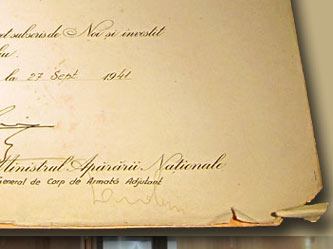 subscris de Noi și investit
la 27 Sept 1941
Ministrul Apărării Naționale
General de Corp de Armată Adjutant